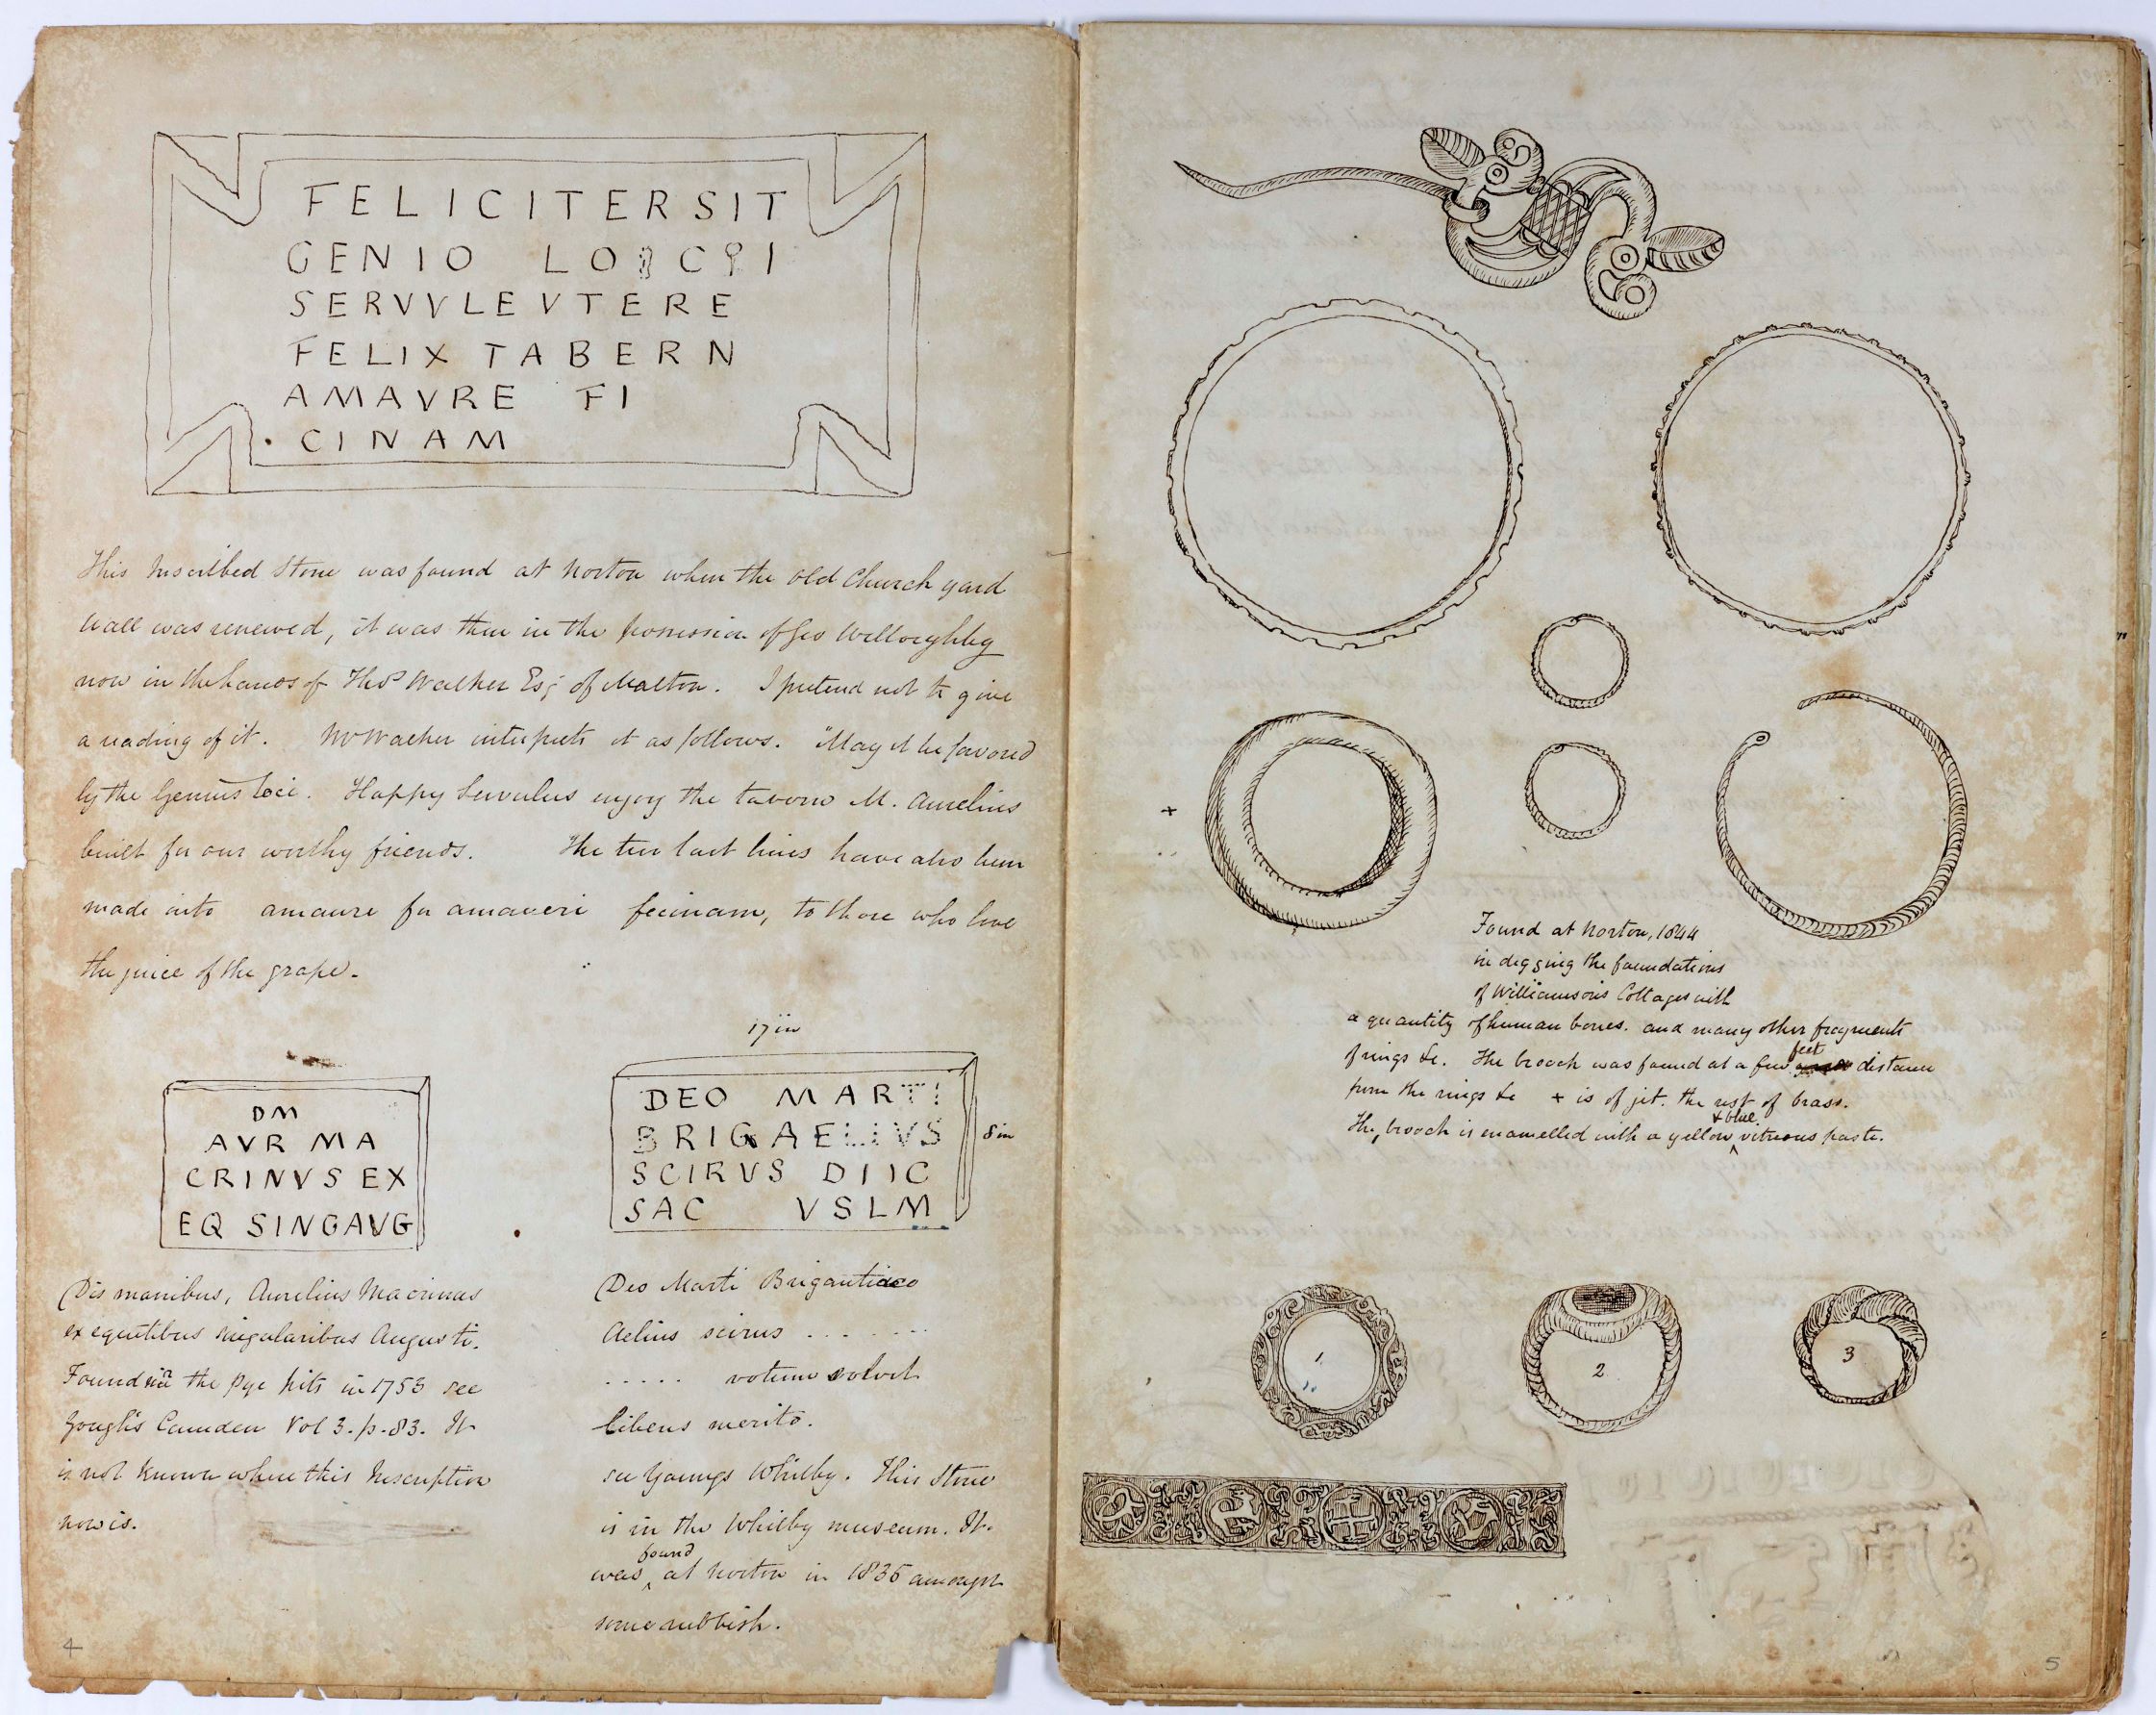 FELICITERSIT
GENIO LO CI
SERVVLEVTERE
FELIX TABERN
AMAVRE FI
CINAM
This Inscribed Stone was found at Norton when the old Church yard
wall was renewed, it was then in the possession of Geo Willoughby
now in the hands of Thos Walker Esq of Malton. I pretend not to give
a reading of it. Mr Walker interprets it as follows. "May it be favored
by the Genius loci. Happy Servulus enjoy the tavern M. Aurelius
built for our worthy friends. The two last lines have also been
made into amaure for amaveri fecinam, to those who love
the juice of the grape.
DM
AVR MA
CRINVS EX
EQ SINGAVG
Dis manibus, Aurelius Macrinus
ex equitibus singularibus Augusti.
Found in the Pye pits in 1753 see
Gough's Camden Vol 3. p. 83. It
is not known where this Inscription
now is.
17 in
DEO MARTI
BRIGAELIVS
SCIRVS DIIC
SAC VSLM
8 in
Deo Marti Brigantiaco
Aelius scirus . . . . . . .
. . . . . votum solvit
libens merito.
see Youngs Whitby. This Stone
is in the Whitby museum. It
was found at Norton in 1835 amongst
some rubbish.
4
+
Found at Norton, 1844
in digging the foundations
of Williamson's Cottages with
a quantity of human bones. and many other fragments
of rings &c. The brooch was found at a few feet distance
from the rings &c + is of jet. the rest of brass.
The brooch is enamelled with a yellow & blue vitreous paste.
1
2
3
5